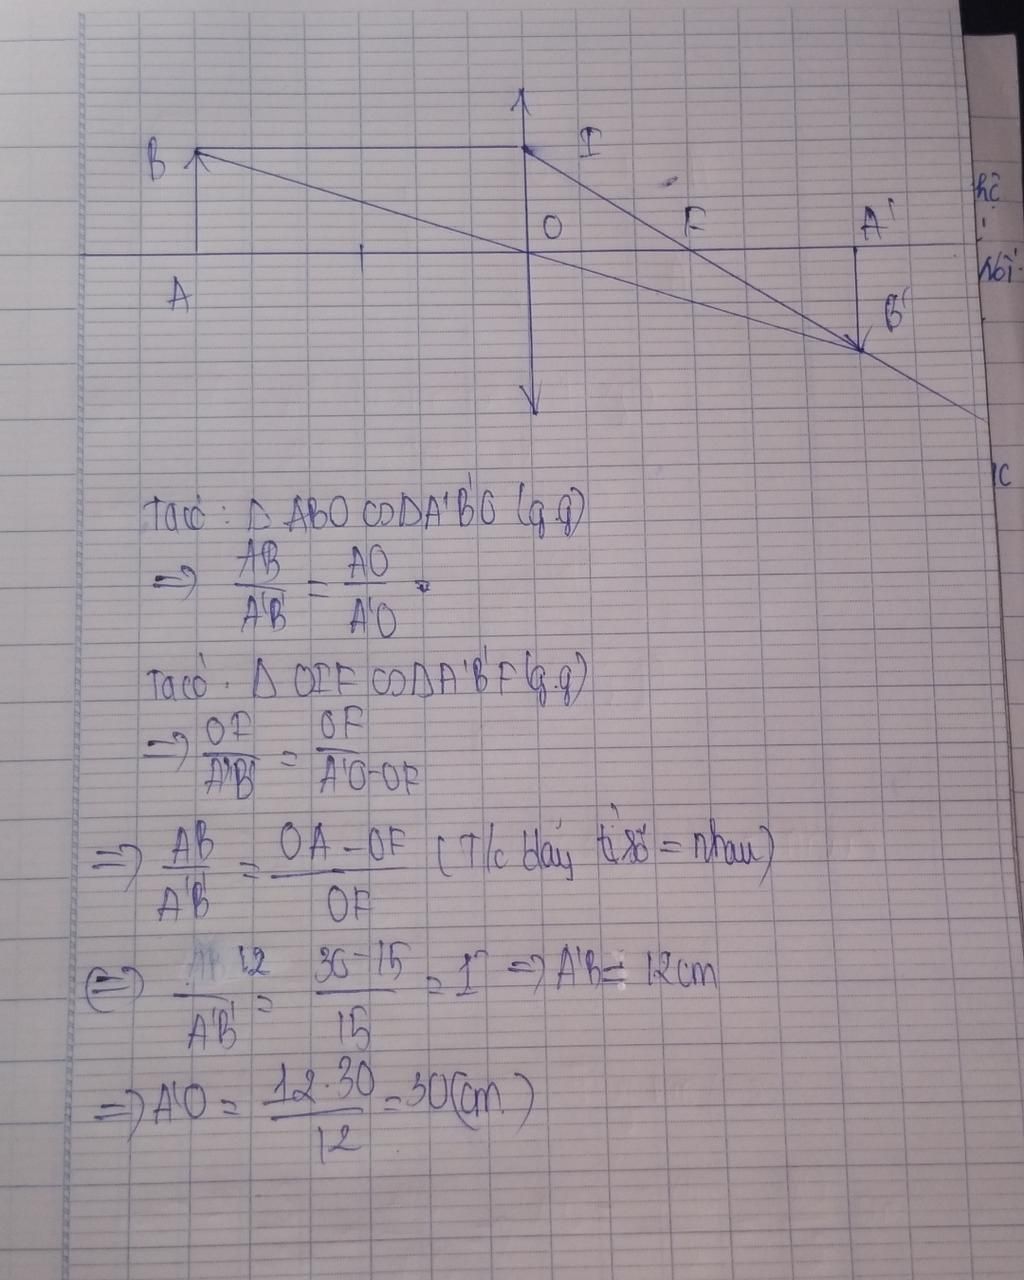 B
I
O
F
A'
A
B'
hệ
Nồi
Ta có : Δ ABO ∽ Δ A'B'O (g.g)
=> AB/A'B' = AO/A'O
Ta có : Δ OIF ∽ Δ A'B'F (g.g)
=> OI/A'B' = OF/A'O-OF
=> AB/A'B' = OA-OF/OF (T/c dãy tỉ số = nhau)
<=> 12/A'B' = 30-15/15 = 1 => A'B' = 12cm
=> A'O = 12.30/12 = 30(cm)